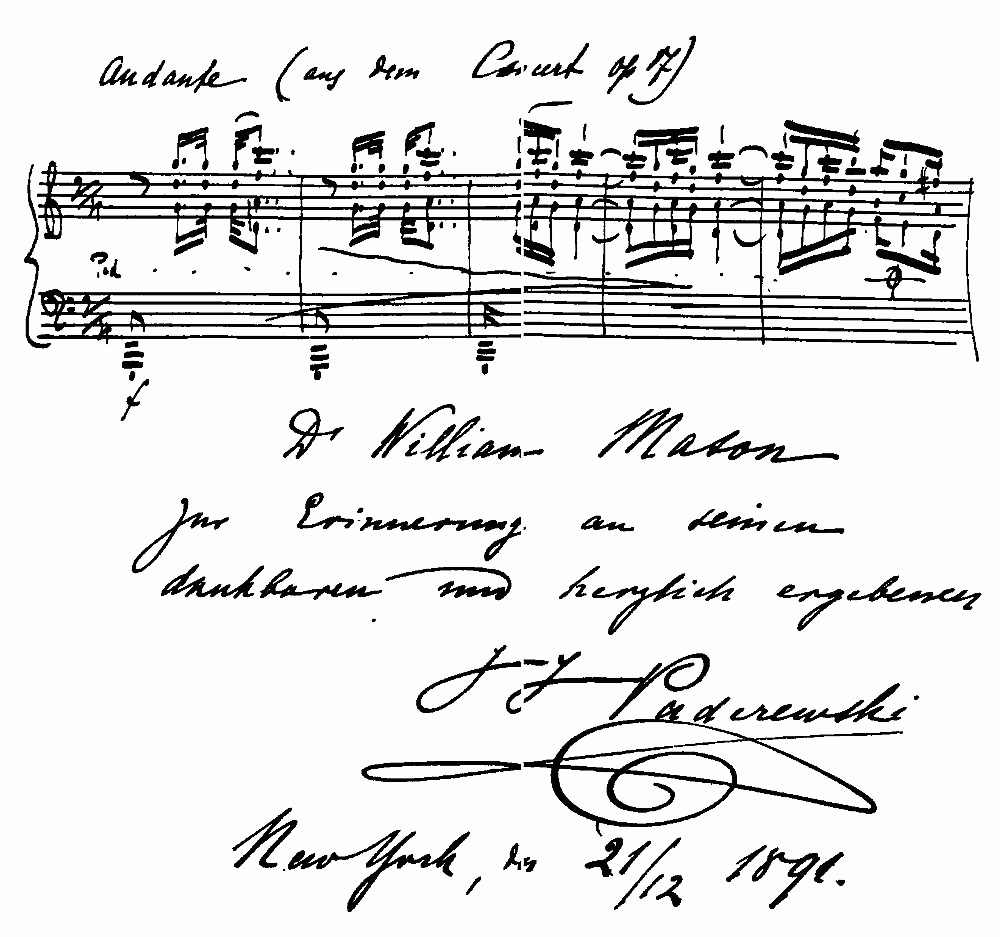 Andante (aus dem Concert op 17)
Ped
f
Dr William Mason
zur Erinnerung an seinen
dankbaren und herzlich ergebenen
J J Paderewski
New York, den 21/12 1891.